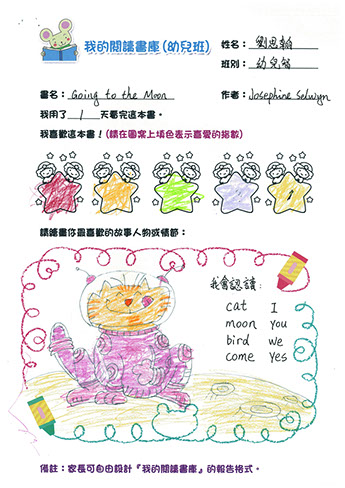 我的閱讀書庫(幼兒班)
姓名：劉恩翰
班別：幼兒智
書名：Going to the Moon
作者：Josephine Selwyn
我用了 1 天看完這本書。
我喜歡這本書！(請在圖案上填色表示喜愛的指數)
請繪畫你最喜歡的故事人物或情節：
我會認讀：
cat I
moon you
bird we
come yes
備註：家長可自由設計『我的閱讀書庫』的報告格式。